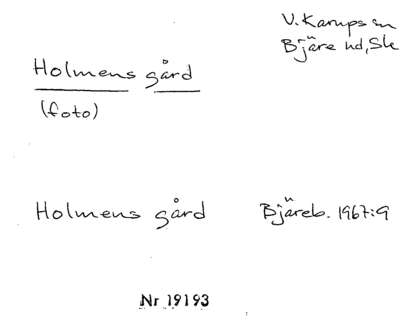 V. Karups sn
Bjäre hd, Sk
Holmens gård
(foto)
Holmens gård Bjäreb. 1967:9
Nr 19193